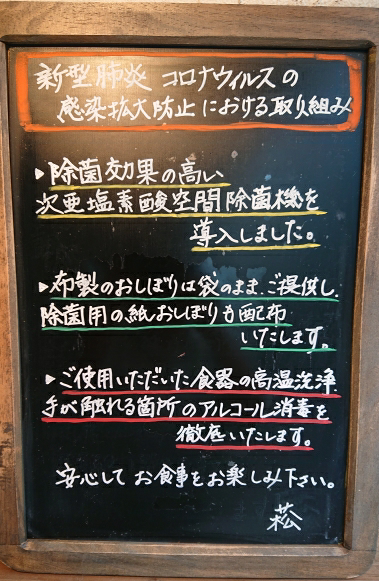 新型肺炎 コロナウィルスの
感染拡大防止における取り組み
▸除菌効果の高い
次亜塩素酸空間除菌機を
導入しました。
▸布製のおしぼりは袋のまま、ご提供し、
除菌用の紙おしぼりも配布
いたします。
▸ご使用いただいた食器の高温洗浄、
手が触れる箇所のアルコール消毒を
徹底いたします。
安心して お食事をお楽しみ下さい。
菘